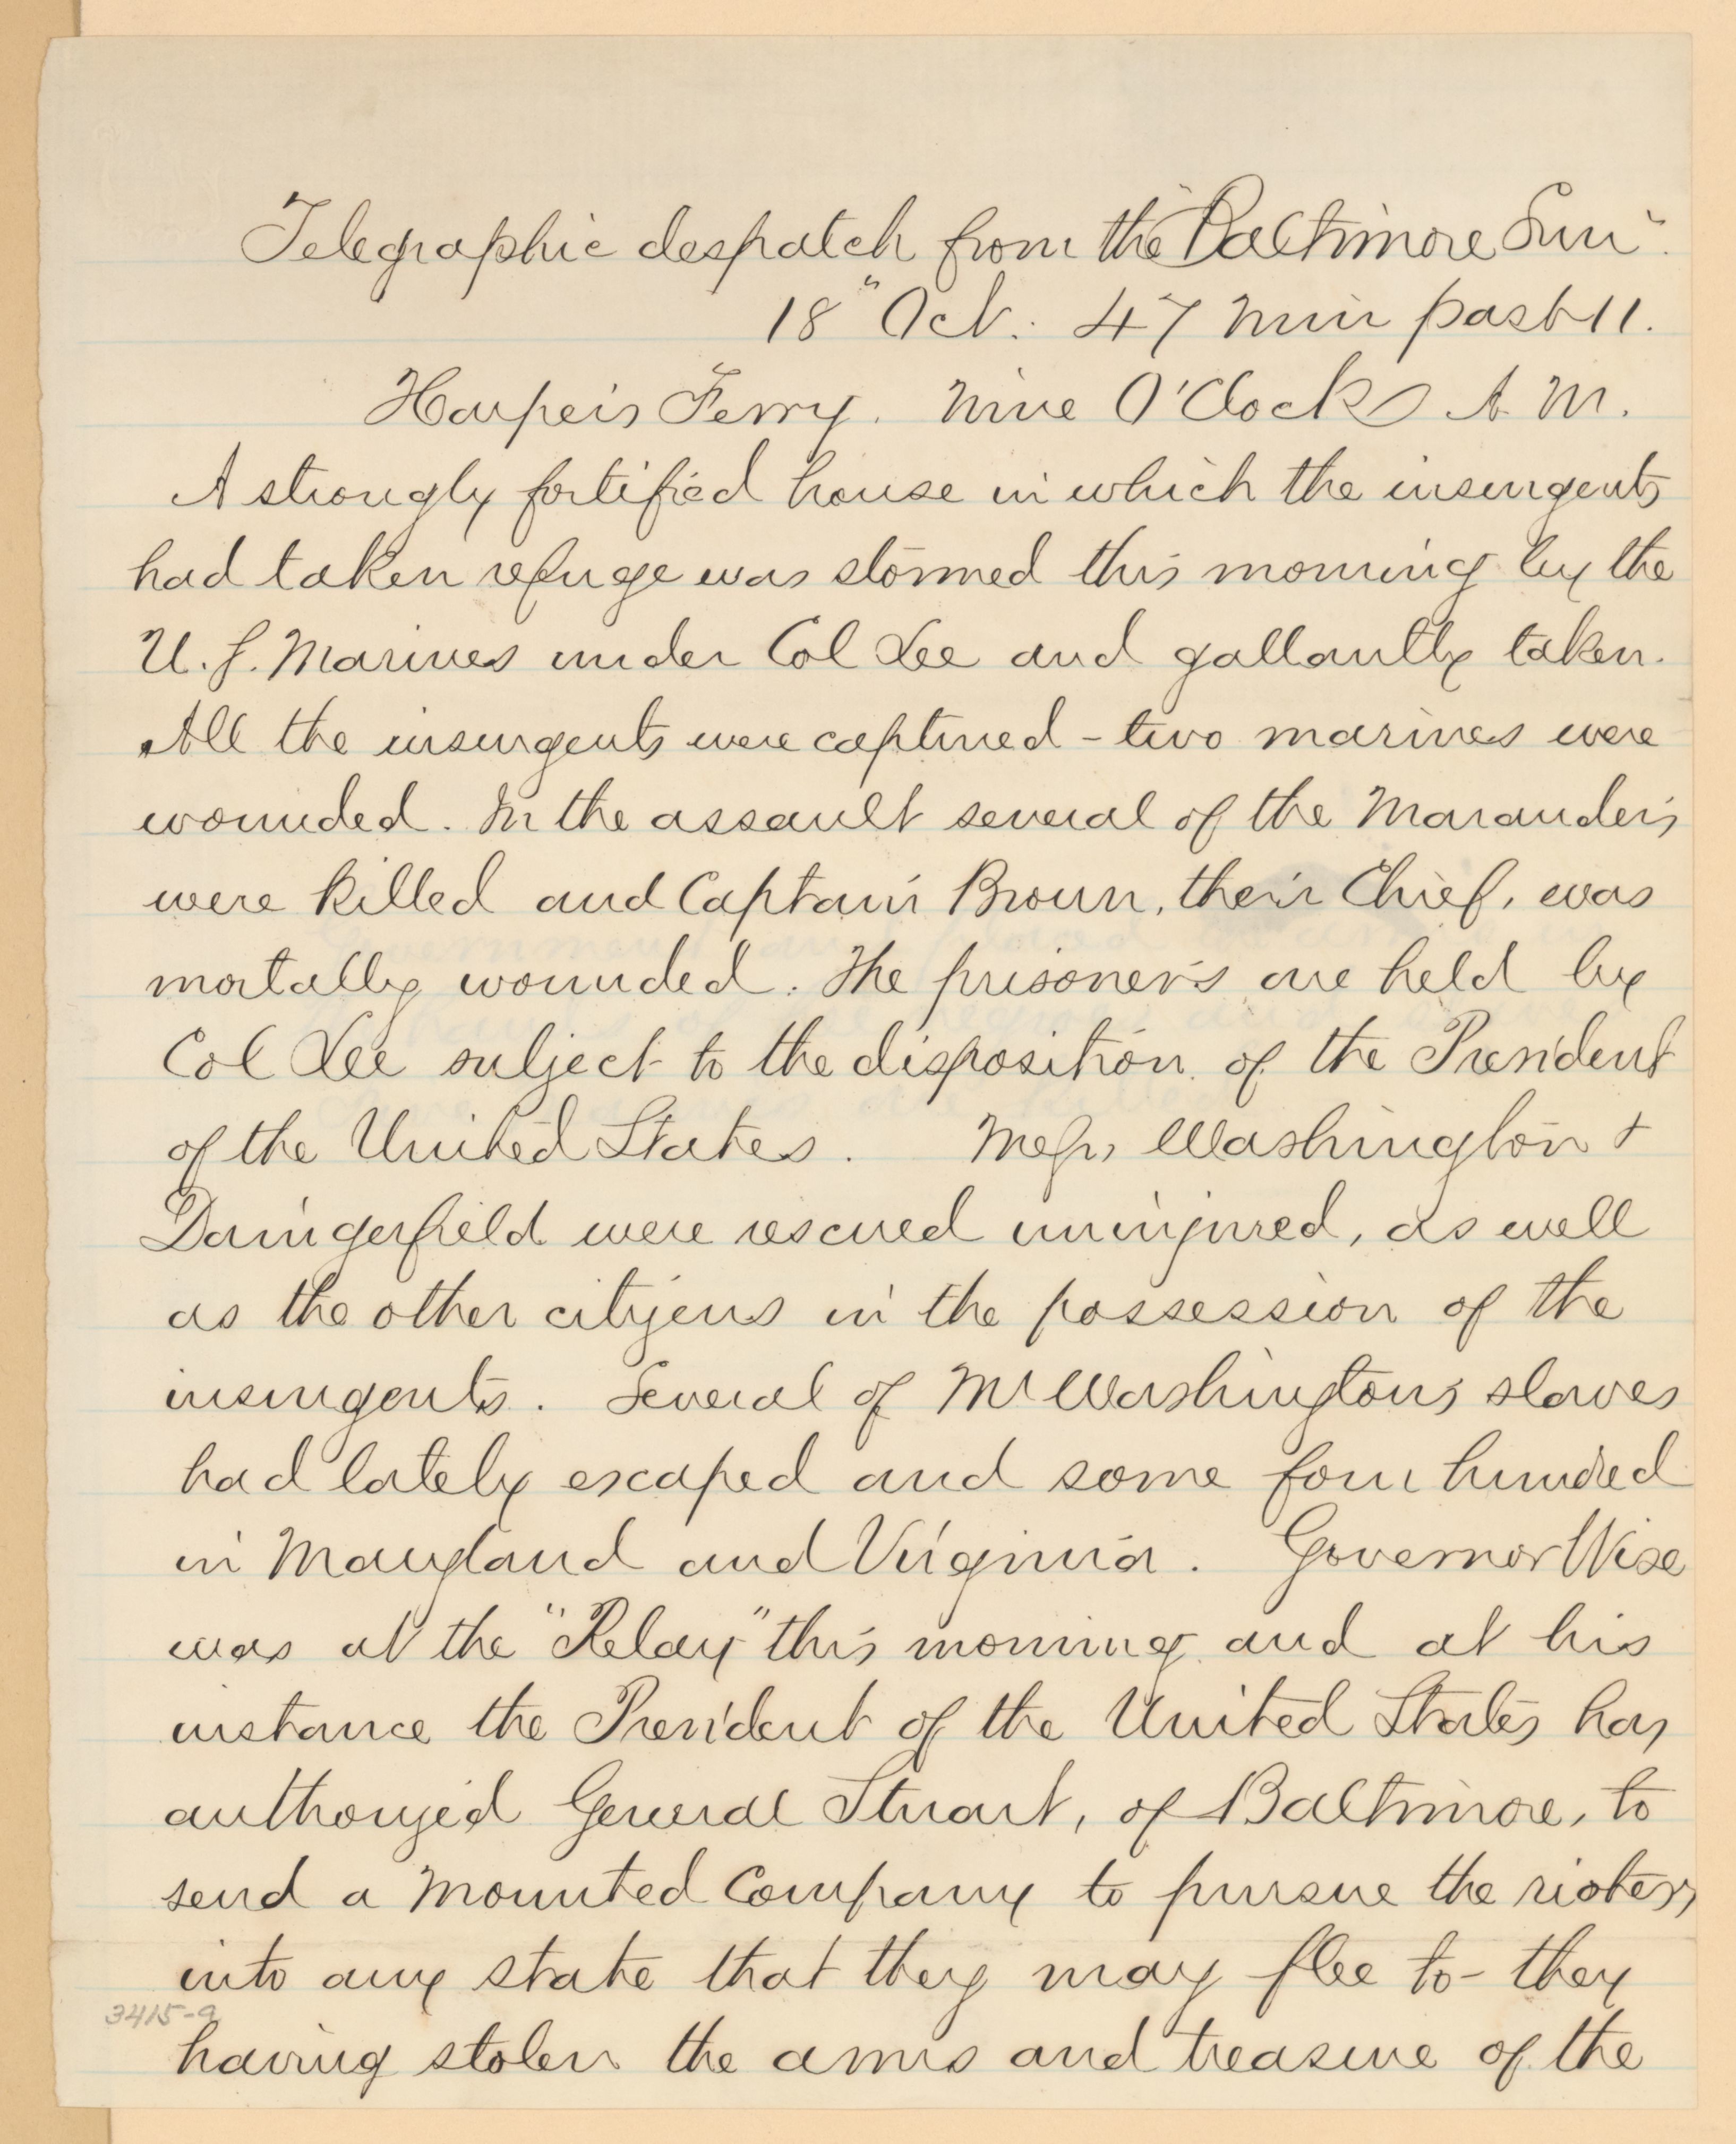 Telegraphic despatch from the "Baltimore Sun".
18" Oct. 47 min past 11.
Harper's Ferry. Nine O'Clock A. M.
A strongly fortified house in which the insurgents
had taken refuge was stormed this morning by the
U. S. Marines under Col Lee and gallantly taken.
All the insurgents were captured - two marines were
wounded. In the assault several of the Marauders
were killed and Captain Brown, their Chief, was
mortally wounded. The prisoners are held by
Col Lee subject to the disposition of the President
of the United States. Messrs Washington +
Daingerfield were rescued uninjured, as well
as the other citizens in the possession of the
insurgents. Several of Mr Washington's slaves
had lately escaped and some four hundred
in Maryland and Virginia. Governor Wise
was at the "Relay" this morning and at his
instance the President of the United States has
authorized General Stuart, of Baltimore, to
send a Mounted Company to pursue the rioters,
into any state that they may flee to - they
3415-9
having stolen the arms and treasure of the